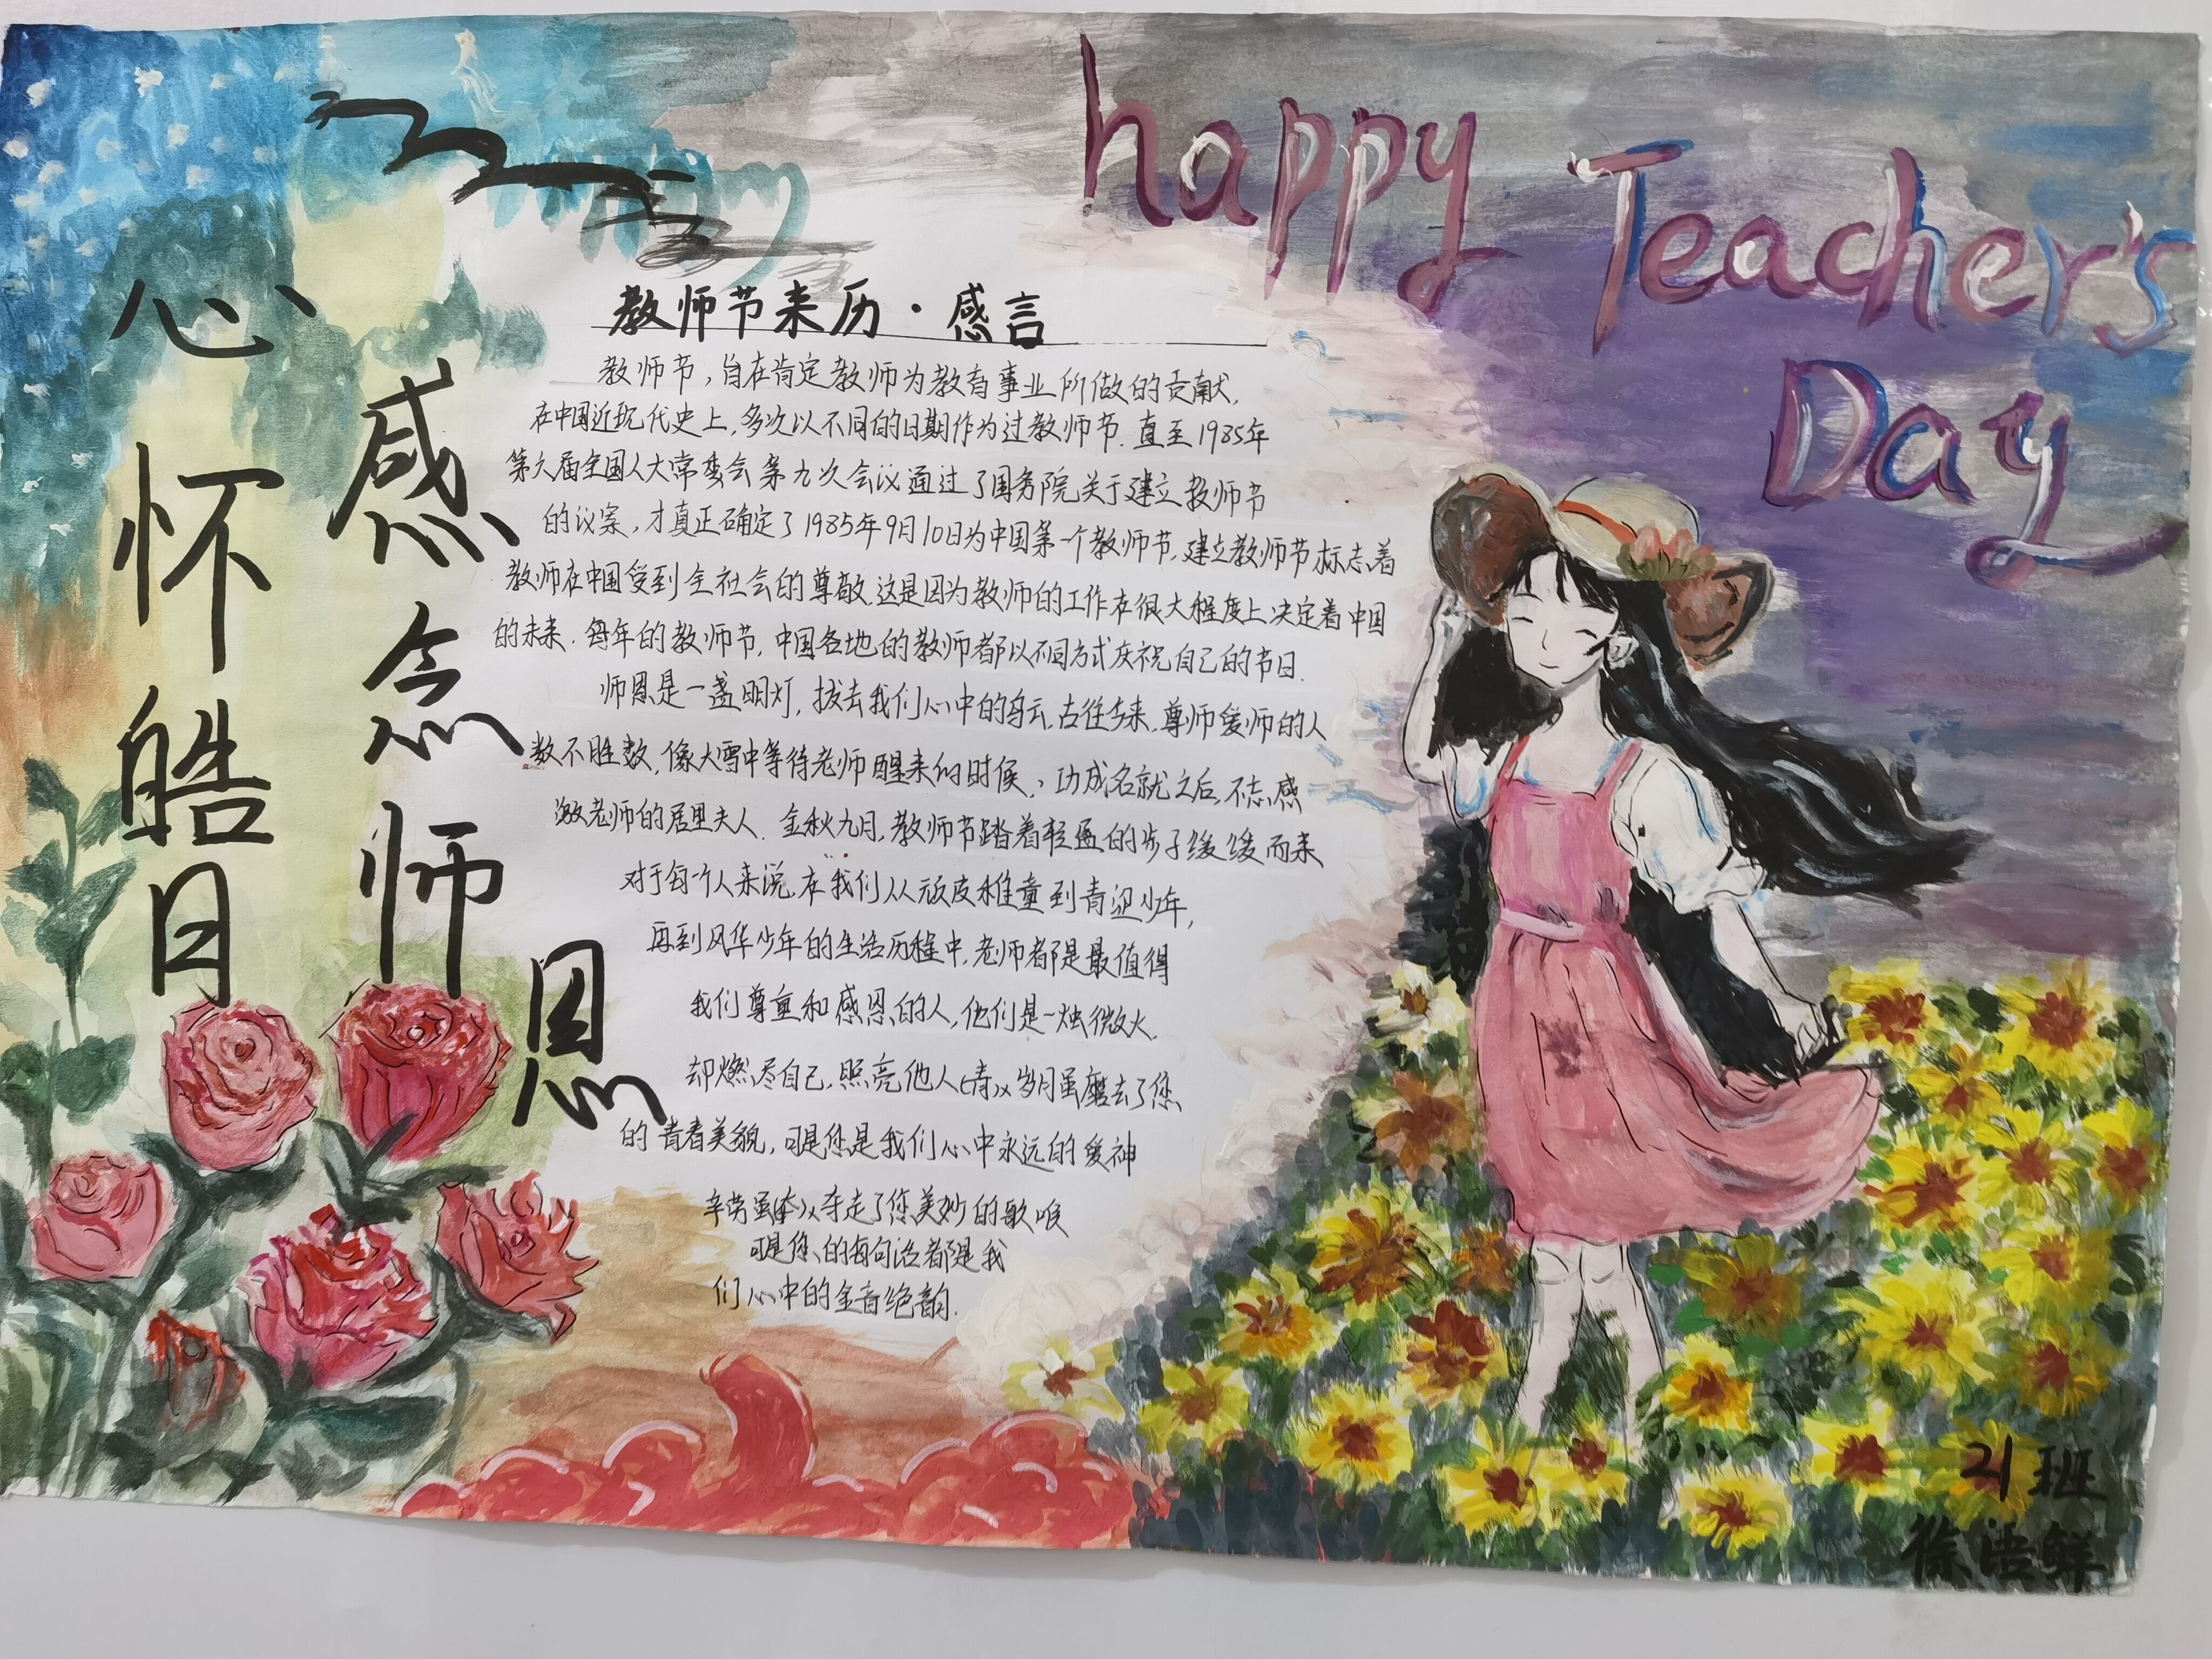 happy Teacher's
Day
感念师恩
心怀皓月
教师节来历·感言
教师节,自在肯定教师为教育事业所做的贡献,
在中国近现代史上,多次以不同的日期作为过教师节.直至1985年
第六届全国人大常委会第九次会议通过了国务院关于建立教师节
的议案,才真正确定了1985年9月10日为中国第一个教师节,建立教师节标志着
教师在中国受到全社会的尊敬.这是因为教师的工作在很大程度上决定着中国
的未来.每年的教师节,中国各地的教师都以不同方式庆祝自己的节日.
师恩是一盏明灯,拔去我们心中的乌云,古往今来,尊师爱师的人
数不胜数,像大雪中等待老师醒来的时候,功成名就之后,不忘感
激老师的居里夫人.金秋九月,教师节踏着轻盈的步子缓缓而来
对于每个人来说,在我们从顽皮稚童到青涩少年,
再到风华少年的生活历程中,老师都是最值得
我们尊重和感恩的人,他们是一烛微火,
却燃尽自己,照亮他人(寿)从岁月虽磨去了您
的青春美貌,可是您是我们心中永远的爱神
辛劳虽(本)从夺走了您美妙的歌喉
可是您的每句话都是我
们心中的金音绝韵.
21班
徐浩鲜